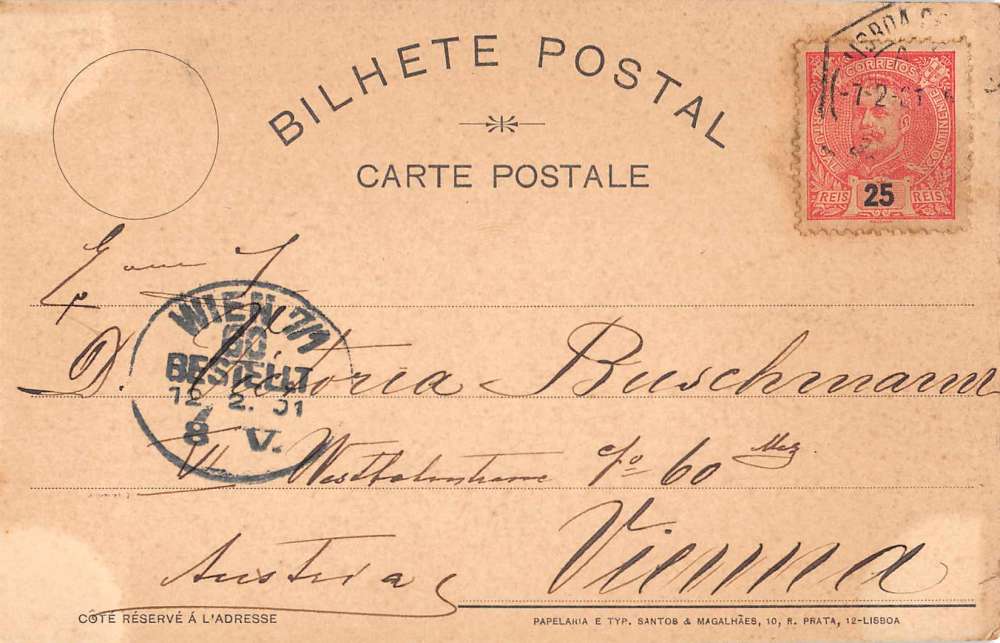 BILHETE POSTAL
CARTE POSTALE
LISBOA
-7-2-01
CORREIOS
PORTUGAL CONTINENTE
REIS 25 REIS
D. Victoria Buschmann
WIEN 7/1
60
BESTELLT
12. 2. 01
8 V.
VII Westbahnstrasse Nº 60 Mez
Vienna
Austria
CÔTÉ RÉSERVÉ Á L'ADRESSE
PAPELARIA E TYP. SANTOS & MAGALHÃES, 10, R. PRATA, 12-LISBOA